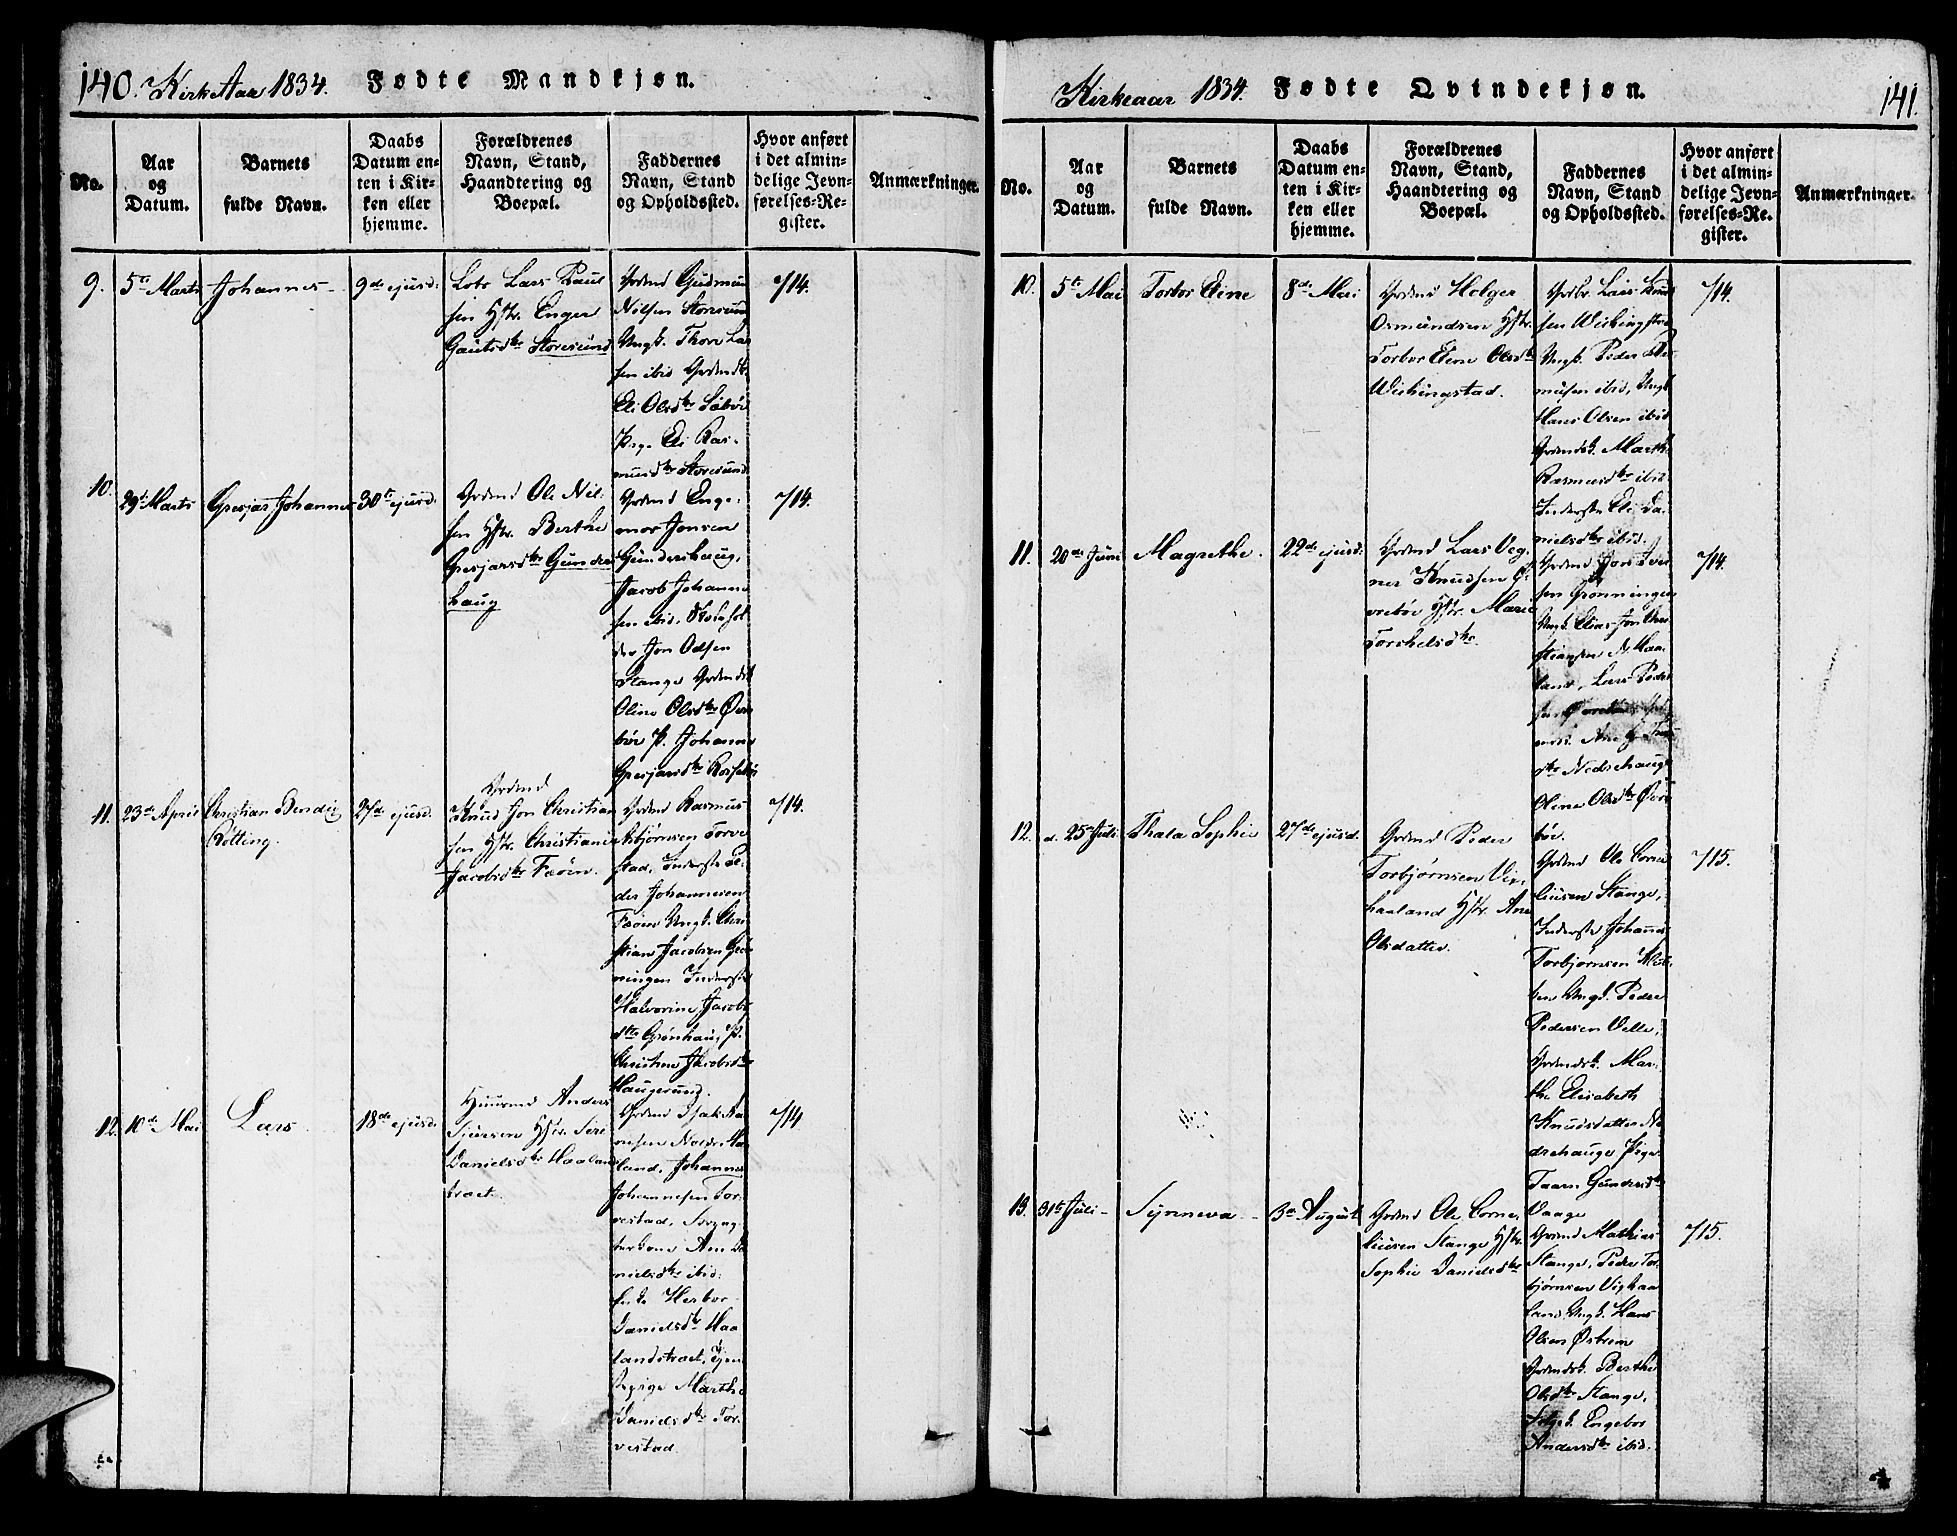 140. Kirke Aar 1834. Fødte Mandkjøn.
No.
Aar
og
Datum.
Barnets
fulde Navn.
Daabs
Datum en-
ten i Kir-
ken eller
hjemme.
Forældrenes
Navn, Stand,
Haandtering og
Boepæl.
Faddernes
Navn, Stand
og Opholdssted.
Hvor anført
i det almin-
delige Jevn-
førelses-Re-
gister.
Anmærkninger.
9.
5te Marts
Johannes
9de ejusd.
Lods Lars Paul
sen Hstr. Enger
Gautsdtr Storesund
Grdmd Gudmun
Nilsen Storesund
Ungk. Thore Lar
sen ibid Grdmdk.
Eli Olsdtr Søbøe
Pige Eli Ras-
musdtr Storesund
714.
10.
29de Marts
Gresjar Johannes
30te ejusd.
Grdmd Ole Nil-
sen Hstr. Berthe
Gresjarsdtr Gunders
haug
Grdmd Enge-
mor Jonsen
Gundershaug,
Jacob Johanne
sen ibid.
der Jon Odsen
Stange Grdmdk
Oline Olsdtr Øvre
bøe P. Johanne
Gresjarsdtr
714.
11.
23de April
Christian Bendix
Røtting.
27de ejusd.
Grdmd
Knud Jon Christian
sen Hstr. Christiane
Jacobsdtr Fæøen.
Grdmd Rasmus
Asbjørnsen Torve
stad, Inderste Pe-
der Johannesen
Fæøen Ungk. Chri
stian Jacobsen Grøn
ningen Inderste
Halvorine Jacobs
dtr Grønhaug, P.
Christine Jacobsdtr
Haugesund.
714.
12.
10de Mai
Lars
18de ejusd.
Huusmd Anders
Sjursen Hstr. Siri
Danielsdtr Haaland
træet.
Grdmd Isak Ha
nsen Nordre Haa
land, Johannes
Johannesen Tor-
vestad,
kone Ane Da
nielsdtr ibid.
Enke Herbor
Danielsdtr Haa
landstræet, Tjen
pige Marthe
Danielsdtr Tor-
vestad.
714
Kirkeaar 1834. Fødte Qvindekjøn.
141.
No.
Aar
og
Datum.
Barnets
fulde Navn.
Daabs
Datum en-
ten i Kir-
ken eller
hjemme.
Forældrenes
Navn, Stand,
Haandtering og
Boepæl.
Faddernes
Navn, Stand
og Opholdssted.
Hvor anført
i det almin-
delige Jevn-
førelses-Re-
gister.
Anmærkninger.
10.
5te Mai
Torbor Eline
8de Mai
Grdmd Helger
Osmundsen Hstr.
Torbor Eline Olsdtr
Wichingstad.
Grdbr. Lars Knud
sen Wichingstad
Ungk. Peder Ras-
musen ibid, Ungk
Hans Olsen ibid
Grdmdsk. Marthe
Rasmusdtr ibid
Inderste Eli Da-
nielsdtr ibid.
714.
11.
20de Juni
Magrethe.
22de ejusd.
Grdmd Lars Veg-
ner Knudsen Ø-
vrebøe Hstr. Marie
Torchelsdtr.
Grdmd Jon Iver
sen Grønningen
Ungk. Elias Jon Chri
stiansen N. Haa-
land, Lars Peder
sen Øvrebøe
Ane
Nedrehaug
Oline Olsdtr Øvre
bøe.
714.
12.
d. 25de Juli
Thala Sophie
27de ejusd.
Grdmd Peder
Torbjørnsen Vix-
haaland Hstr. Ane
Olsdatter.
Grdmd Ole Corne
liusen Stange,
Inderste Johannes
Torbjørnsen
Ungk. Peder
Pedersen Velle,
Grdmdsk. Mar-
the Elisabeth
Knudsdatter Ne
drehauge Pige
Taarn Gundersdtr
Vaage
715.
13.
31te Juli
Synneva
3de August
Grdmd Ole Corne-
liusen Stange Hstr.
Sophie Danielsdtr
Grdmd Mathias
Stange, Peder Tor-
bjørnsen Vixhaa
land Ungk. Hans
Olsen Østrem
Grdmdsk. Berthe
Olsdtr Stange,
Pigek. Engebor
Andersdtr ibid.
715.